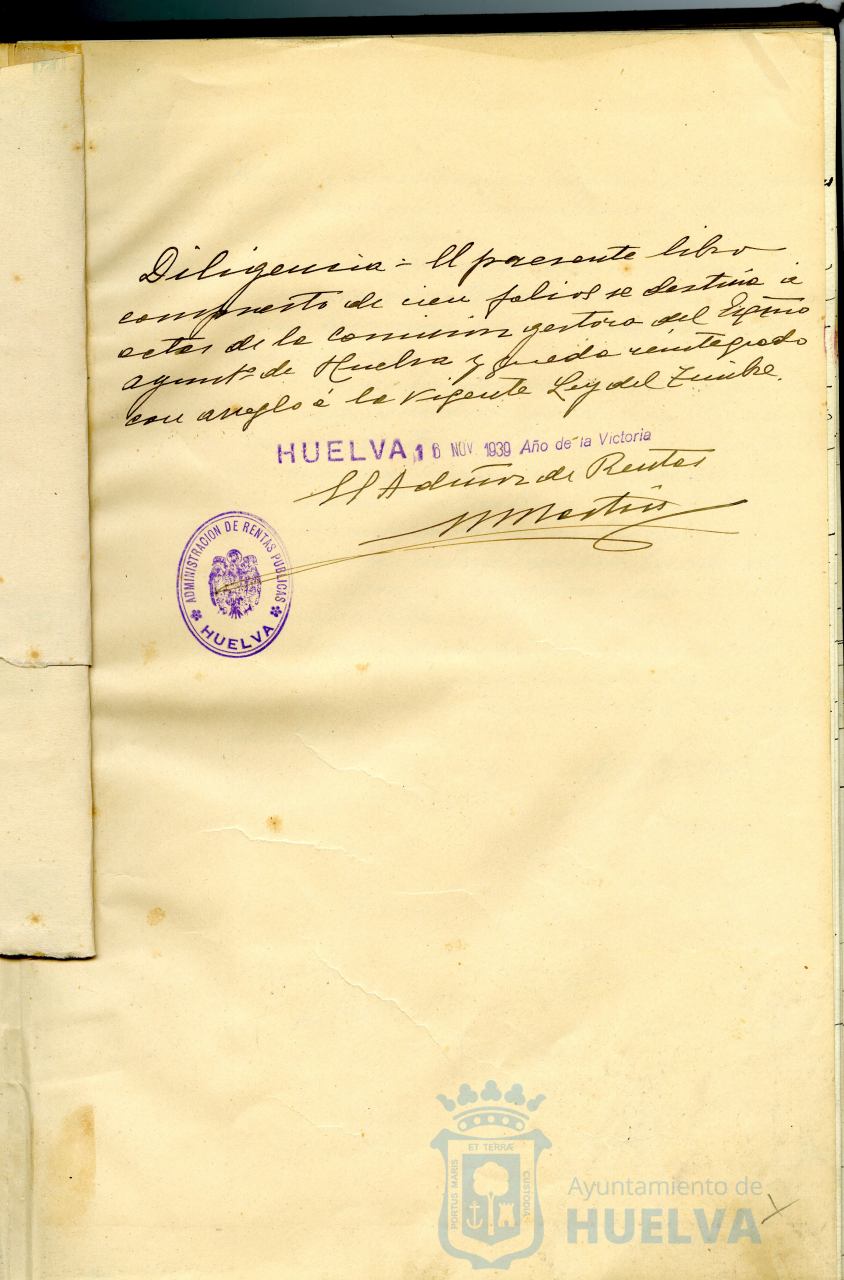 Diligencia = El presente libro
compuesto de cien folios se destina á
actas de la Comision gestora del Exqmo
ayuntº de Huelva y queda reintegrado
con arreglo á la vigente Ley del Timbre.
HUELVA, 16 NOV 1939 Año de la Victoria
El Admor de Rentas
ADMINISTRACION DE RENTAS PUBLICAS
HUELVA
ET TERRÆ
PORTUS MARIS
CUSTODIA
Ayuntamiento de
HUELVA